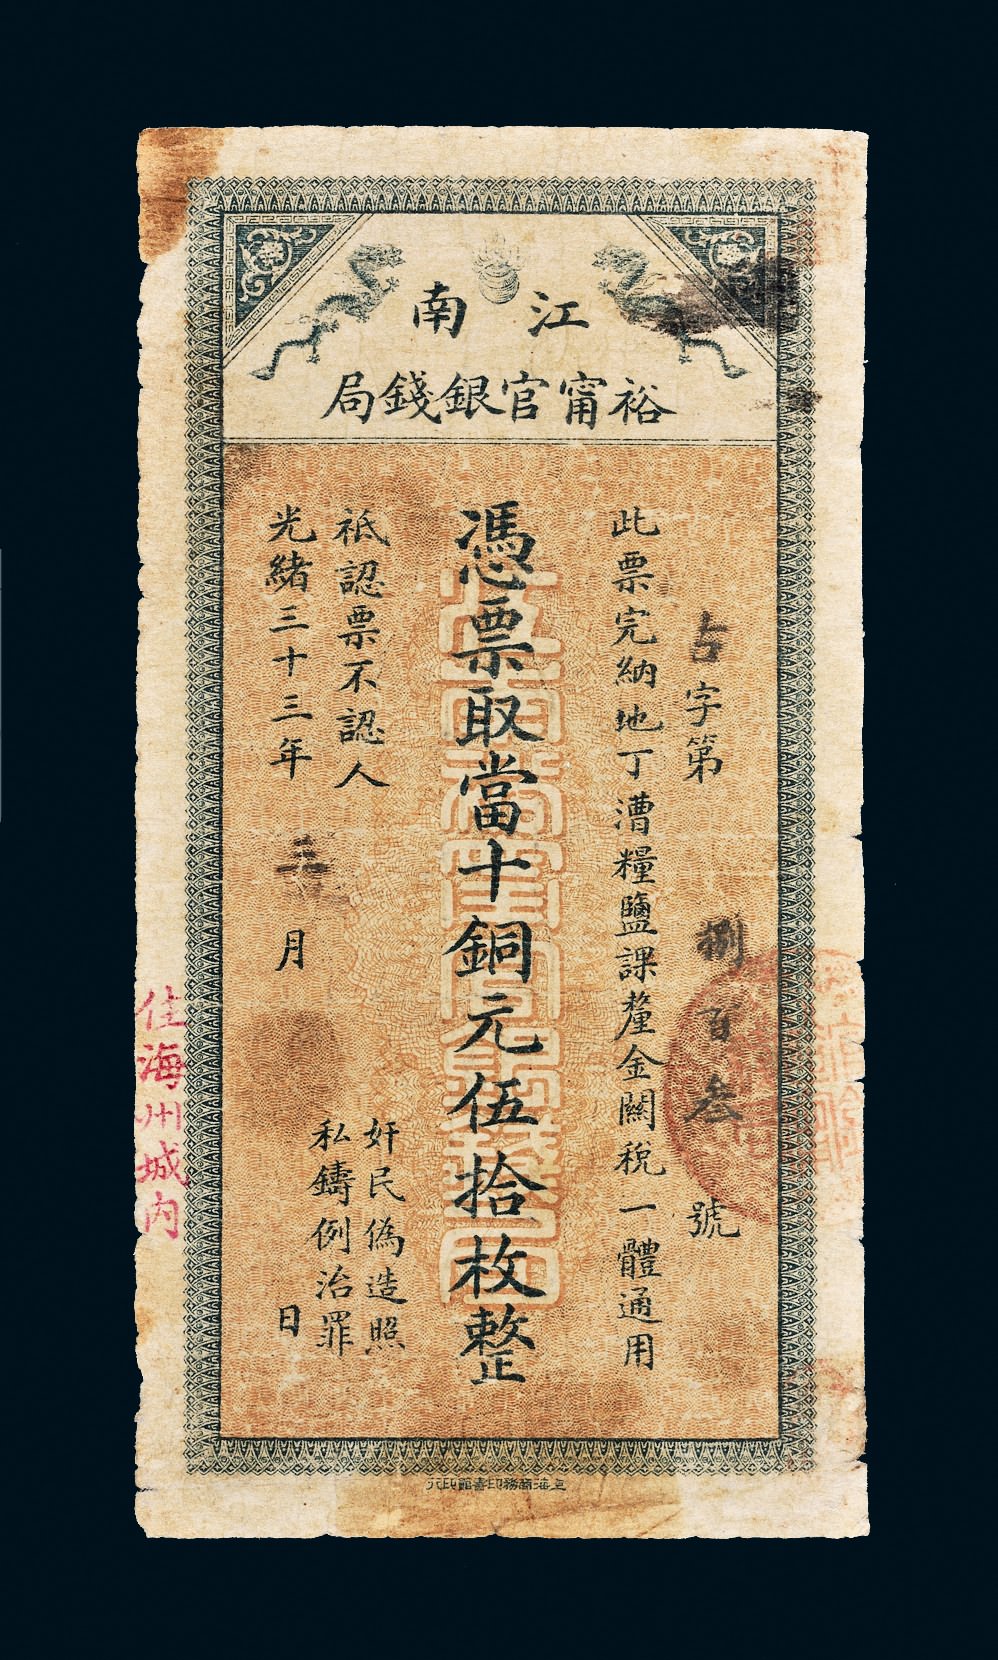 江南
裕甯官銀錢局
占字第捌百叁號
此票完納地丁漕糧鹽課釐金關稅一體通用
憑票取當十銅元伍拾枚整
江南裕甯官銀錢局
祇認票不認人
奸民偽造照
私鑄例治罪
光緒三十三年三月日
住海州城内
上海商務印書館印行